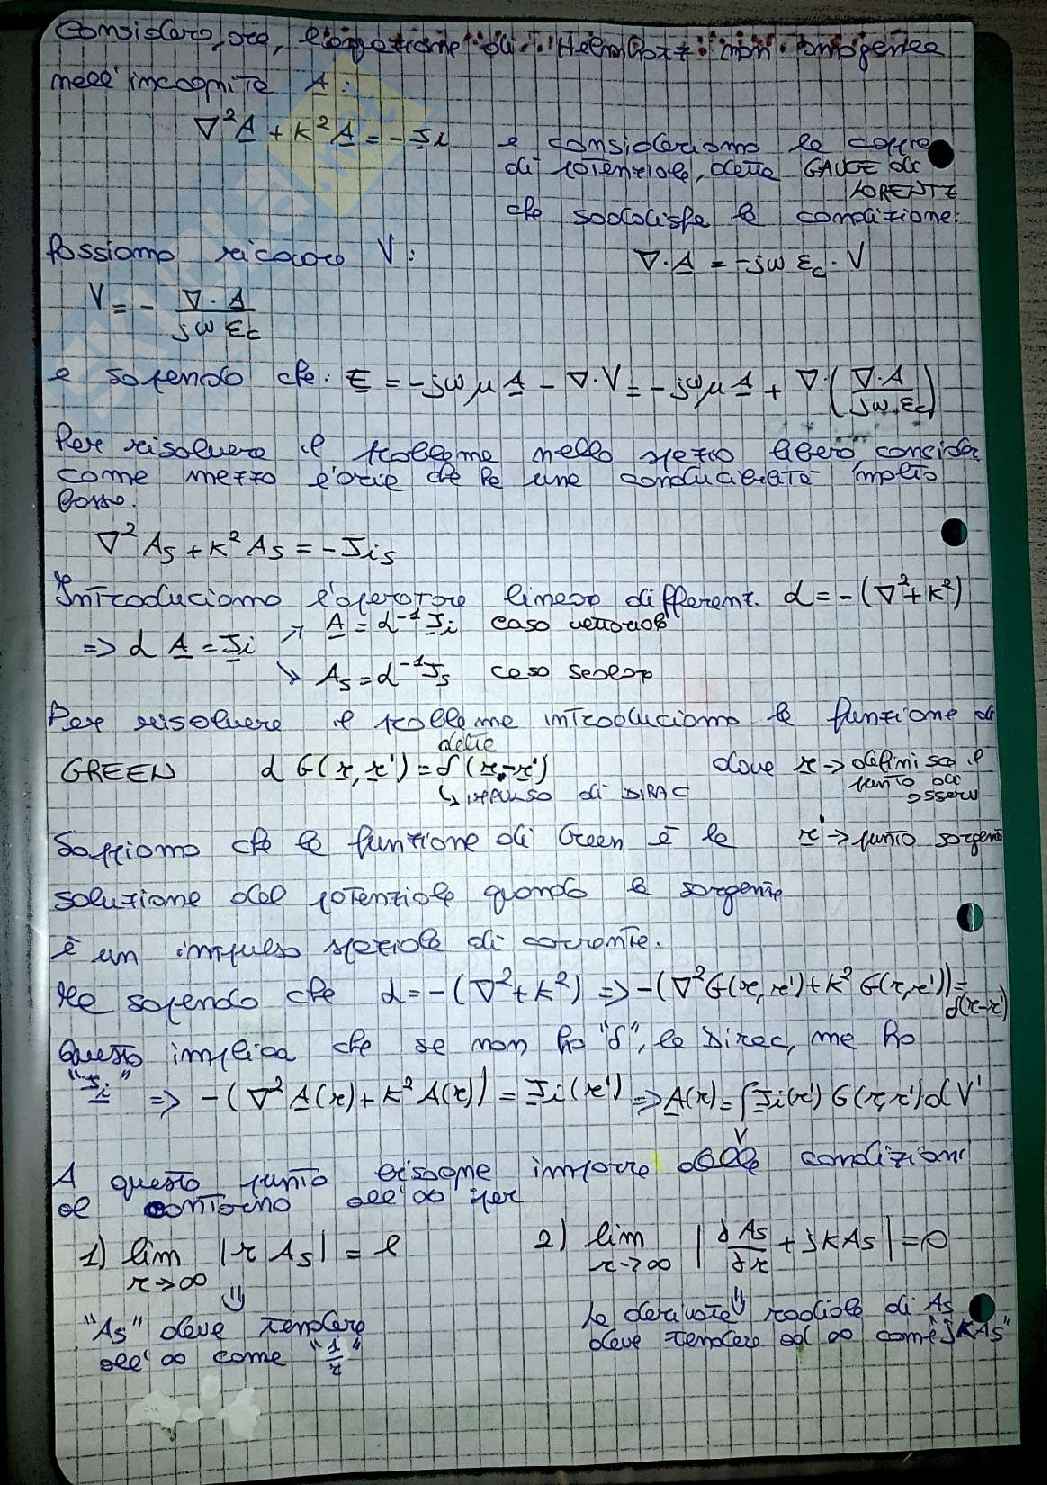 Considero, ora, l'equazione di Helmholtz non omogenea
nell'incognita A:
∇²A + K²A = -Ji
e consideriamo la coppia
di potenziale, detta GAUGE di
LORENTZ
che soddisfa la condizione:
Possiamo ricavare V:
∇·A = -jω εc · V
V = - ∇·A / jω εc
e sapendo che: E = -jωμ A - ∇·V = -jωμ A + ∇·(∇·A / jω εc)
Per risolvere il problema nello spazio libero consider
come mezzo l'aria che ha una conducibilità molto
bassa.
∇² As + K² As = -Jis
Introduciamo l'operatore lineare different. L = -(∇²+K²)
=> L A = Ji ↗ A = L⁻¹ Ji caso vettoriale
↘ As = L⁻¹ Js caso scalare
Per risolvere il problema introduciamo la funzione di
GREEN L G(r, r') = δ(r-r') dove r → definisce il
delta
↳ impulso di DIRAC
punto di
osserv
Sappiamo che la funzione di Green è la r' → punto sorgente
soluzione del potenziale quando la sorgente
è un impulso spaziale di corrente.
sapendo che L = -(∇²+K²) => -(∇²G(r,r')+K² G(r,r')) =
δ(r-r')
Questo implica che se non ho "δ", la Dirac, ma ho
"Ji" => -(∇² A(r)+K² A(r)) = Ji(r') => A(r) = ∫ Ji(r') G(r,r') dV'
V
A questo punto bisogna imporre delle condizioni
al contorno all'∞ per
1) lim |r As| = l
r→∞
2) lim |∂As/∂r + jKAs| = 0
r→∞
"As" deve tendere
all'∞ come "1/r"
La derivata radiale di As
deve tendere ad ∞ come "jKAs"